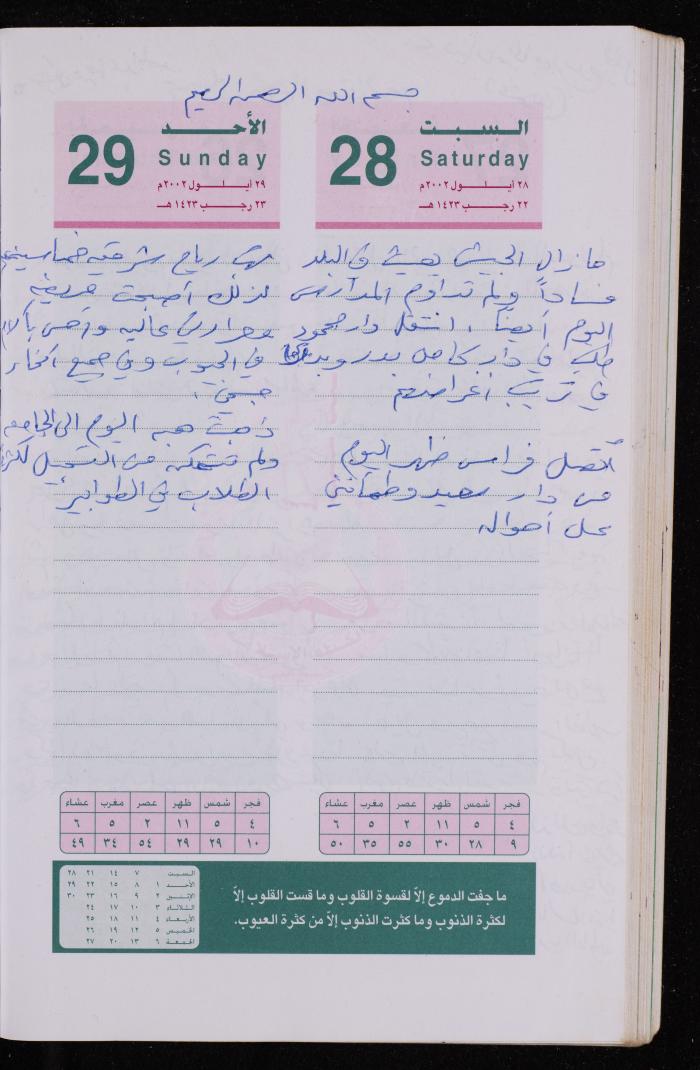 بسم الله الرحمن الرحيم
السبت
28
Saturday
٢٨ أيلول ٢٠٠٢م
٢٢ رجب ١٤٢٣هـ
ما زال الجيش يعيث في البلد
فساداً ولم تداوم المدارس
اليوم أيضاً. انتقل دار محمود
في دار كامل بدر وبدأوا
في ترتيب أغراضهم
اتصل فراس ظهر اليوم
من دار سعيد وطمأنني
عل أحواله
فجر شمس ظهر عصر مغرب عشاء
٤ ٥ ١١ ٢ ٥ ٦
٩ ٢٨ ٣٠ ٥٥ ٣٥ ٥٠
الأحد
29
Sunday
٢٩ أيلول ٢٠٠٢م
٢٣ رجب ١٤٢٣هـ
رياح شرقية خماسينية
لذلك أصبحت مريضة
وحرارتي عالية وأحس بآلام
في الجنوب وفي جميع أنحاء
جسمي.
ذهبت هبه اليوم الى الجامعه
ولم تتمكن من التسجيل لكثرة
الطلاب في الطوابير
فجر شمس ظهر عصر مغرب عشاء
٤ ٥ ١١ ٢ ٥ ٦
١٠ ٢٩ ٢٩ ٥٤ ٣٤ ٤٩
ما جفت الدموع إلاّ لقسوة القلوب وما قست القلوب إلاّ
لكثرة الذنوب وما كثرت الذنوب إلاّ من كثرة العيوب.
السبت ٧ ١٤ ٢١ ٢٨
الأحد ١ ٨ ١٥ ٢٢ ٢٩
الإثنين ٢ ٩ ١٦ ٢٣ ٣٠
الثلاثاء ٣ ١٠ ١٧ ٢٤
الأربعاء ٤ ١١ ١٨ ٢٥
الخميس ٥ ١٢ ١٩ ٢٦
الجمعة ٦ ١٣ ٢٠ ٢٧